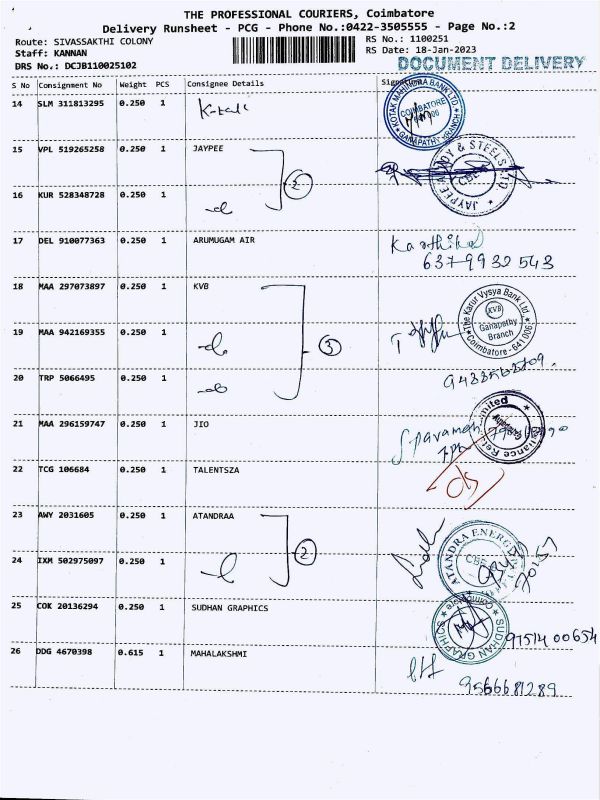 THE PROFESSIONAL COURIERS, Coimbatore
Delivery Runsheet - PCG - Phone No.:0422-3505555 - Page No.:2
Route: SIVASSAKTHI COLONY RS No.: 1100251
Staff: KANNAN RS Date: 18-Jan-2023
DRS No.: DCJB110025102 DOCUMENT DELIVERY
S No Consignment No Weight PCS Consignee Details Signature
14 SLM 311813295 0.250 1 Kotak
KOTAK MAHINDRA BANK LTD. COIMBATORE GANAPATHY BRANCH
15 VPL 519265258 0.250 1 JAYPEE
2
16 KUR 528348728 0.250 1
JAYPEE ALLOY & STEELS LTD. CBE
17 DEL 910077363 0.250 1 ARUMUGAM AIR Karthika
18 MAA 297073897 0.250 1 KVB
The Karur Vysya Bank Ltd. KVB Ganapathy Branch Coimbatore - 641 006.
19 MAA 942169355 0.250 1
3
20 TRP 5066495 0.250 1
21 MAA 296159747 0.250 1 JIO
22 TCG 106684 0.250 1 TALENTSZA
23 AWY 2031605 0.250 1 ATANDRAA
2
24 IXM 502975097 0.250 1
ATANDRA ENERGY
25 COK 20136294 0.250 1 SUDHAN GRAPHICS
SUDHAN GRAPHICS
26 DDG 4670398 0.615 1 MAHALAKSHMI
9566681289